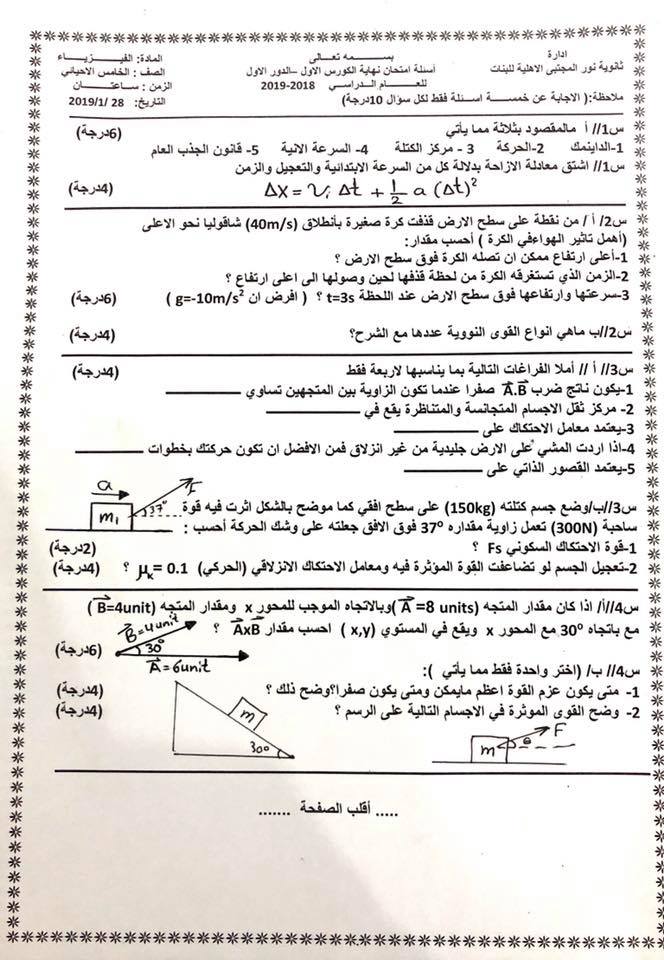 ادارة
ثانوية نور المجتبى الاهلية للبنات
بســـــمه تعـــالى
اسئلة امتحان نهاية الكورس الاول –الدور الاول
للعـــــام الـدراسـي 2018-2019
المادة: الفيـزيـــاء
الصف : الخامس الاحيائي
الزمن : ساعتـــــان
التاريخ: 28 /1/2019
ملاحظة:( الاجابة عن خمســـة اسـئلة فقط لكل سؤال 10درجة)
س1// أ مالمقصود بثلاثة مما يأتي (6درجة)
1-الداينمك 2-الحركة 3 - مركز الكتلة 4- السرعة الانية 5- قانون الجذب العام
س1// اشتق معادلة الازاحة بدلالة كل من السرعة الابتدائية والتعجيل والزمن
Δx = vᵢ Δt + 1/2 a (Δt)² (4درجة)
س2/ أ / من نقطة على سطح الارض قذفت كرة صغيرة بأنطلاق (40m/s) شاقوليا نحو الاعلى
(أهمل تاثير الهواءفي الكرة ) أحسب مقدار:
1-أعلى ارتفاع ممكن ان تصله الكرة فوق سطح الارض ؟
2-الزمن الذي تستغرقه الكرة من لحظة قذفها لحين وصولها الى اعلى ارتفاع ؟
3-سرعتها وارتفاعها فوق سطح الارض عند اللحظة t=3s ؟ ( افرض ان g=-10m/s² ) (6درجة)
س2//ب ماهي انواع القوى النووية عددها مع الشرح؟ (4درجة)
س3// أ // أملا الفراغات التالية بما يناسبها لاربعة فقط (4درجة)
1-يكون ناتج ضرب A⃗.B⃗ صفرا عندما تكون الزاوية بين المتجهين تساوي ________
2- مركز ثقل الاجسام المتجانسة والمتناظرة يقع في ________
3-يعتمد معامل الاحتكاك على ________
4-اذا اردت المشي على الارض جليدية من غير انزلاق فمن الافضل ان تكون حركتك بخطوات ________
5-يعتمد القصور الذاتي على ________
a
F
37°
m₁
س3//ب/وضع جسم كتلته (150kg) على سطح افقي كما موضح بالشكل اثرت فيه قوة
ساحبة (300N) تعمل زاوية مقداره 37⁰ فوق الافق جعلته على وشك الحركة أحسب :
1-قوة الاحتكاك السكوني Fs ؟ (2درجة)
2-تعجيل الجسم لو تضاعفت القوة المؤثرة فيه ومعامل الاحتكاك الانزلاقي (الحركي) μK= 0.1 ؟ (4درجة)
س4//أ/ اذا كان مقدار المتجه (A⃗ =8 units) وبالاتجاه الموجب للمحور x ومقدار المتجه (B⃗=4unit)
مع باتجاه 30⁰ مع المحور x ويقع في المستوي (x,y ) احسب مقدار A⃗xB⃗ ؟ (6درجة)
B⃗=4unit
30°
A⃗=6unit
س4// ب/ (اختر واحدة فقط مما يأتي ):
1- متى يكون عزم القوة اعظم مايمكن ومتى يكون صفرا؟وضح ذلك ؟ (4درجة)
2- وضح القوى الموثرة في الاجسام التالية على الرسم ؟ (4درجة)
m
30°
m
F
θ
..... أقلب الصفحة .......